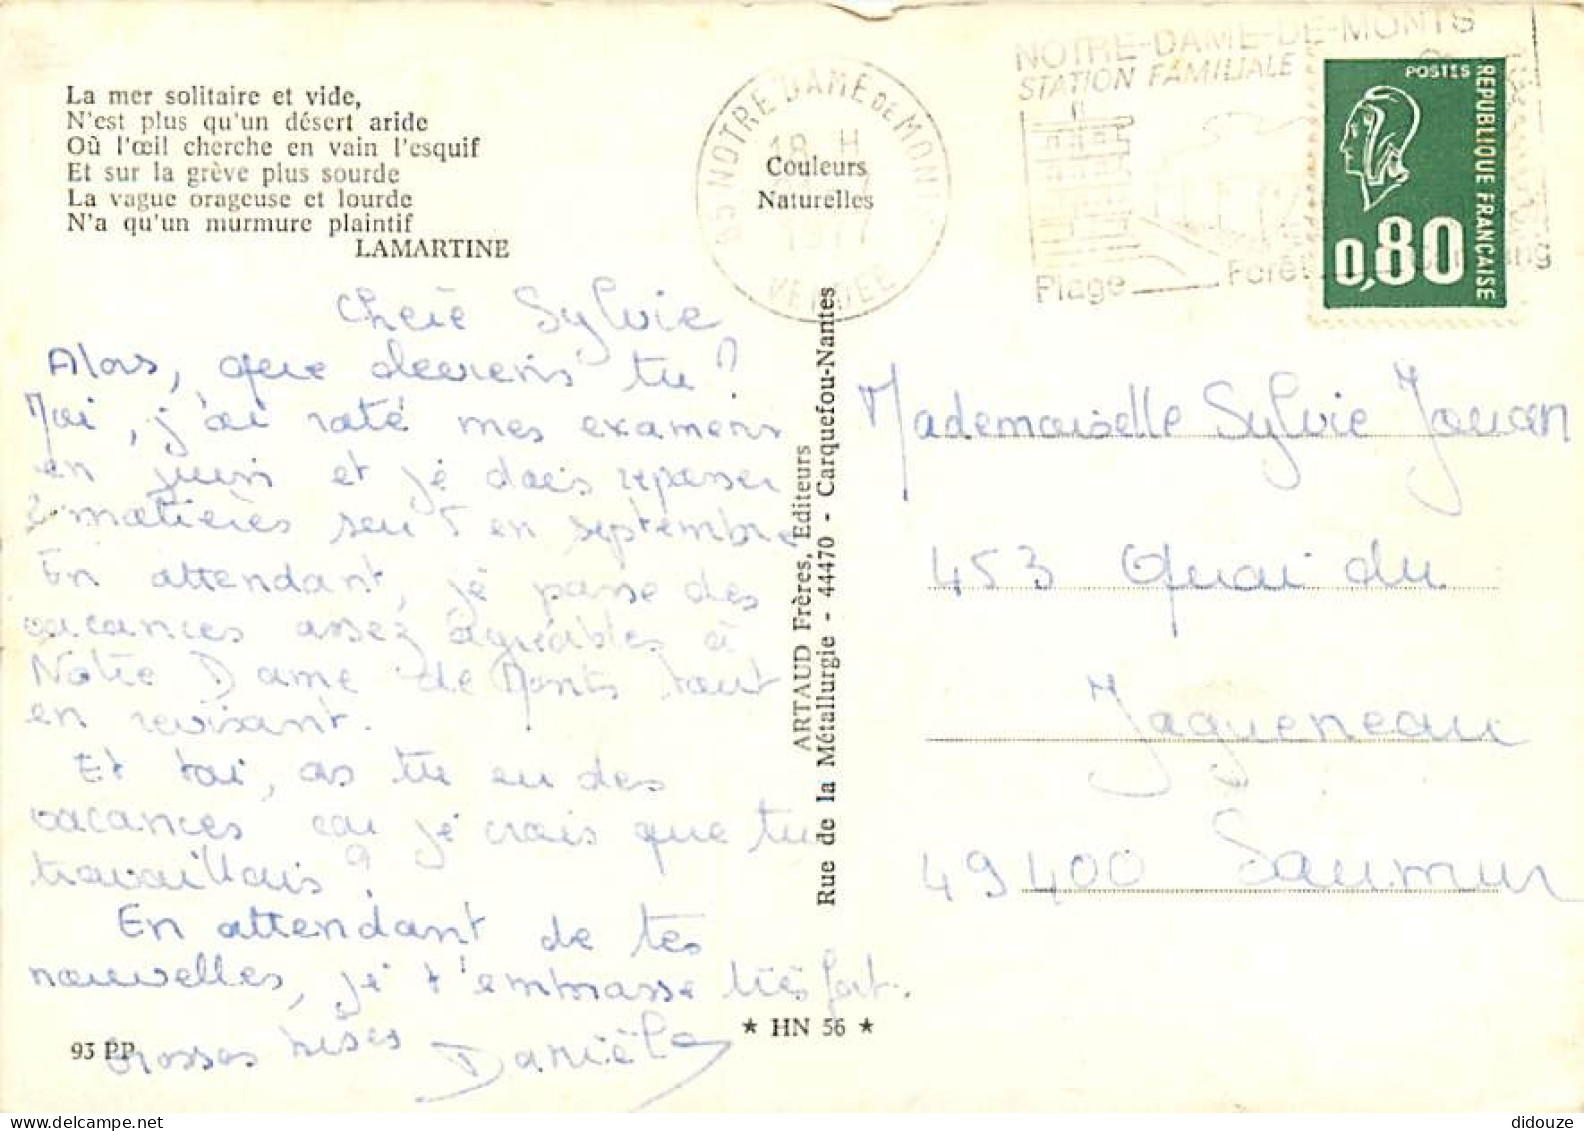 La mer solitaire et vide,
N'est plus qu'un désert aride
Où l'œil cherche en vain l'esquif
Et sur la grève plus sourde
La vague orageuse et lourde
N'a qu'un murmure plaintif
LAMARTINE
Couleurs
Naturelles
85 NOTRE DAME DE MONTS
18 H
1977
VENDEE
NOTRE-DAME-DE-MONTS
STATION FAMILIALE
Plage
Forêt
POSTES
REPUBLIQUE FRANÇAISE
0,80
Chère Sylvie
Alors, que deviens tu ?
Moi, j'ai raté mes examens
en juin et je dois repasser
2 matières sur 5 en septembre
En attendant, je passe des
vacances assez agréables à
Notre Dame de Monts tout
en revisant.
Et toi, as tu eu des
vacances car je crois que tu
travaillais ?
En attendant de tes
nouvelles, je t'embrasse très fort.
Grosses bises Danièle
93 PP
ARTAUD Frères, Editeurs
Rue de la Métallurgie - 44470 - Carquefou-Nantes
★ HN 56 ★
Mademoiselle Sylvie Jouan
453 Quai du
Jagueneau
49400 Saumur
didouze